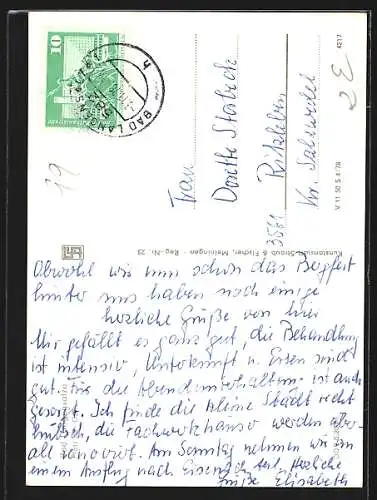 10
BAD LANG
Frau
Dorthe Storbeck
3561 Ritzleben
Kr. Salzwedel
4217
V 11 50 S 4/78
Kunstanstalt Straub & Fischer, Meiningen · Reg.-Nr. 23
Obwohl wir nun schon das Bergfest
hinter uns haben noch einige
herzliche Grüße von hier
Mir gefällt es ganz gut, die Behandlung
ist intensiv, Unterkunft u. Essen sind
gut. Für die Abendunterhaltung ist auch
gesorgt. Ich finde die kleine Stadt recht
hübsch, die Fachwerkhäuser werden aber
alle renoviert. Am Sonntag nehmen wir an
einem Ausflug nach Eisenach teil. Herzliche
Grüße Elisabeth